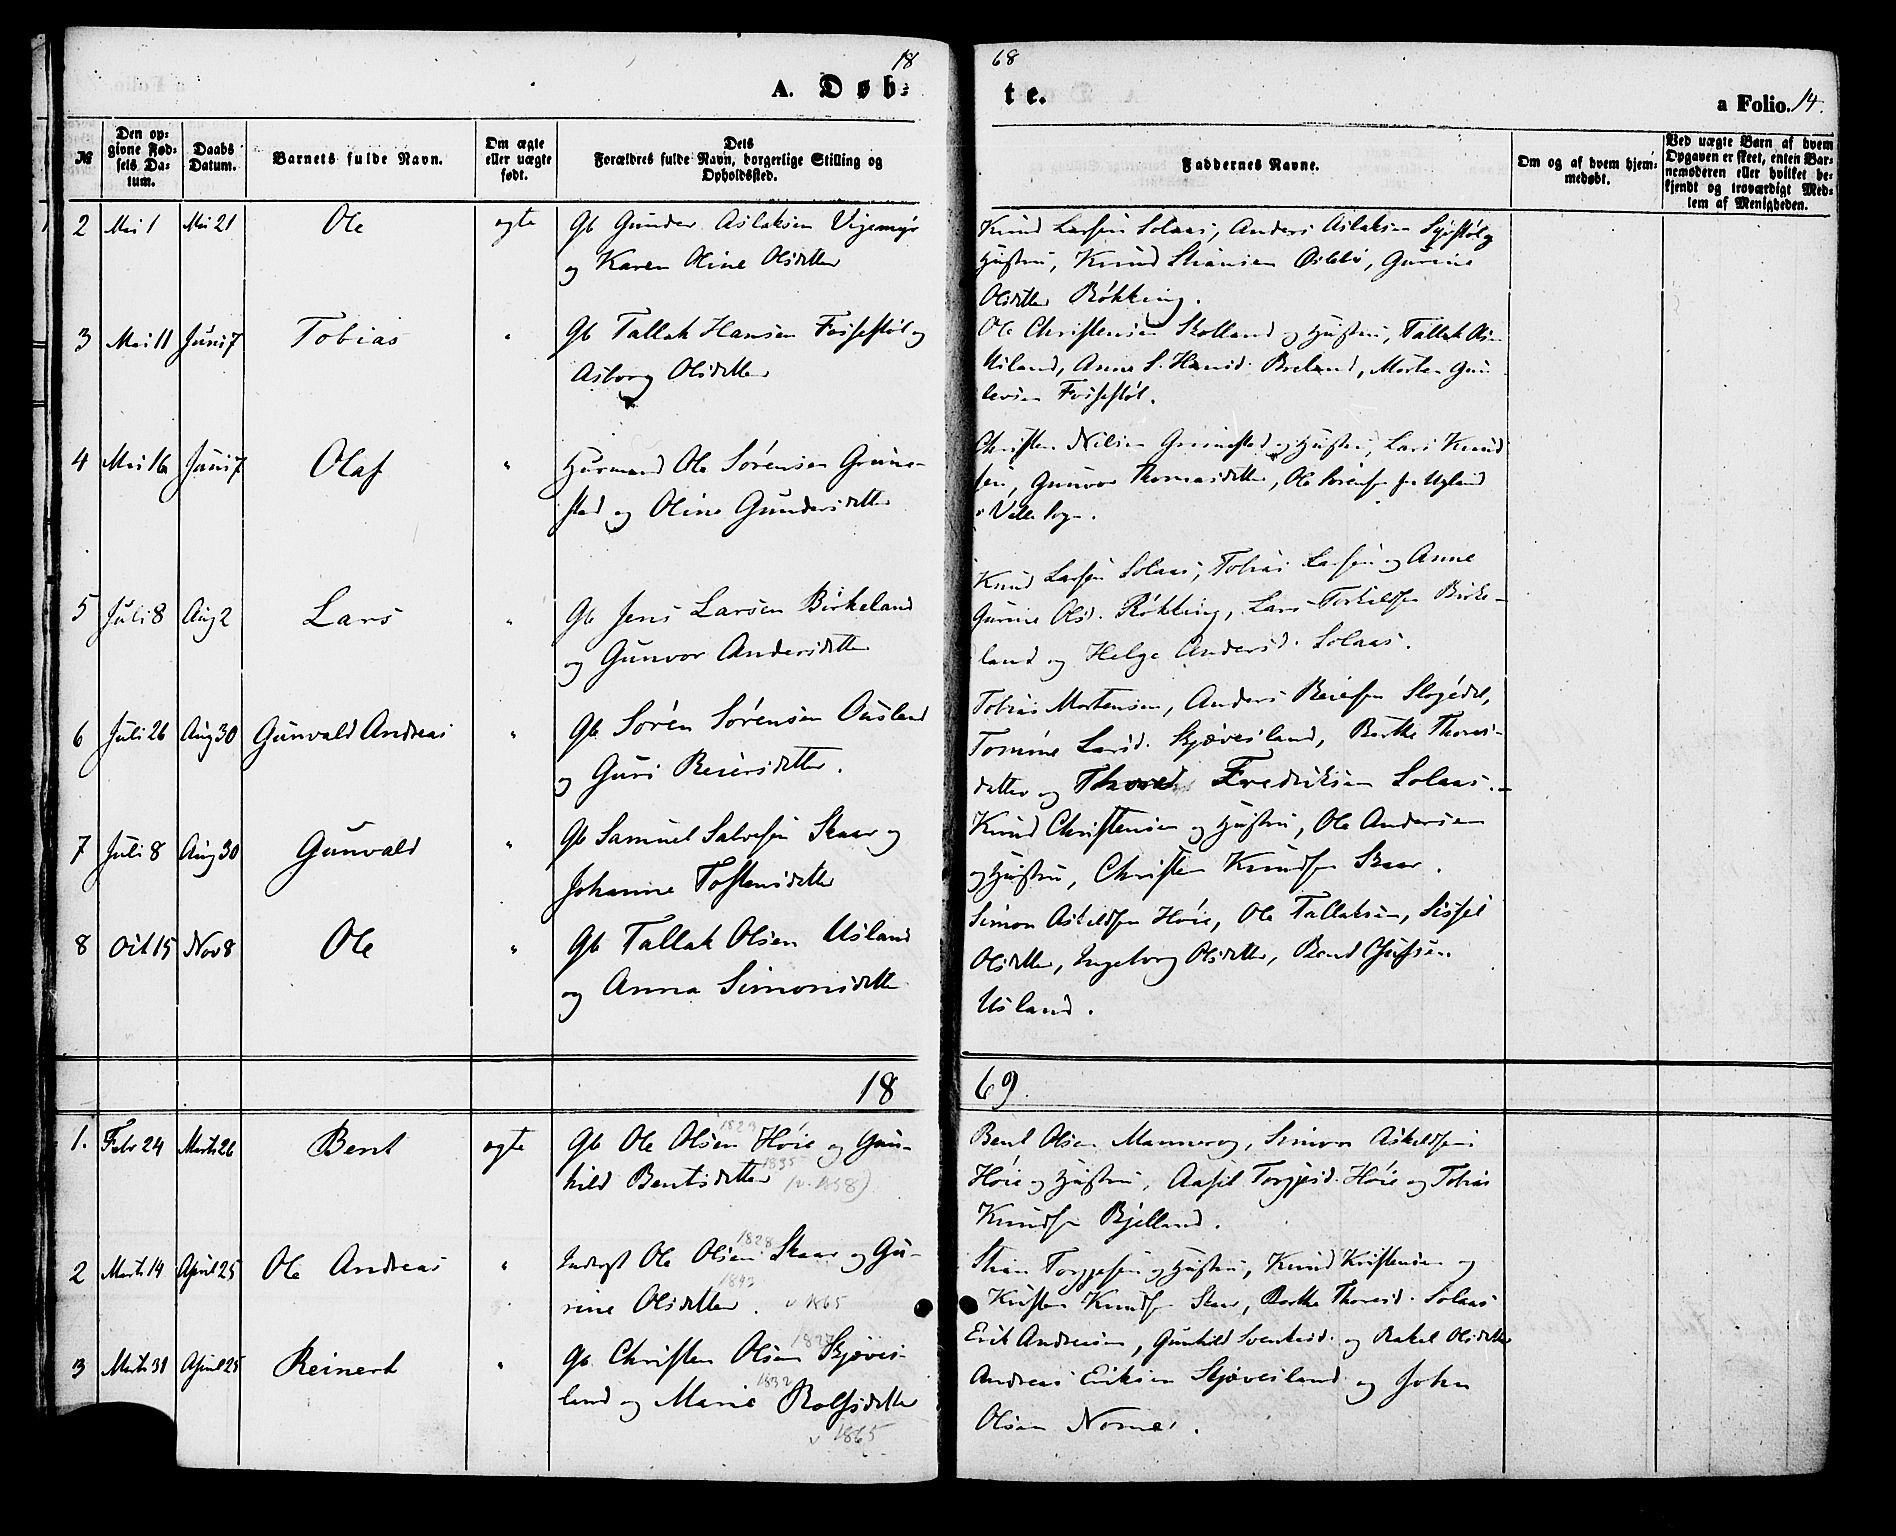 18
68
A. Døb=
te.
a Folio. 14.
№
Den op=
givne Fød=
sels Da=
tum.
Daabs
Datum.
Barnets fulde Navn.
Om ægte
eller uægte
født.
Dets
Forældres fulde Navn, borgerlige Stilling og
Opholdssted.
Faddernes Navne.
Om og af hvem hjem=
medøbt.
Ved uægte Børn af hvem
Opgaven er skeet, enten Bar=
nemoderen eller hvilket be=
kjendt og troværdigt Med=
lem af Menigheden.
2 Mai 1 Mai 21 Ole ægte Gb Gunder Aslaksen Vigemyr
og Karen Oline Olsdatter
Knud Larsen Solaas, Anders Aslaksen
Hustru, Knud Stiansen, Gurine
Olsdatter Røkking.
3 Mai 11 Juni 7 Tobias " Gb Tallak Hansen Fossestøl og
Asborg Olsdatter
Ole Christensen Skolland og Hustru, Tallak Ols.
Usland, Anne S. Hansd. Breland, Morten Gun
levsen Fossestøl.
4 Mai 16 Juni 7 Olaf " Husmand Ole Sørensen Grime-
stad og Oline Gundersdatter
Christen Nilsen Grimestad og Hustru, Lars Knud
sen, Gunvor Thomasdatter, Ole Sørensen fra Usland
i Valle Sogn.
5 Juli 8 Aug 2 Lars " Gb Jens Larsen Birkeland
og Gunvor Andersdatter
Knud Larsen Solaas, Tobias Larsen og Anne
Gurine Olsd. Røkking, Lars Torkildsen Birke-
land og Helge Andersd. Solaas.
6 Juli 26 Aug 30 Gunvald Andreas " Gb Søren Sørensen Ousland
og Guri Reiersdatter.
Tobias Mortensen, Anders Reiersen Slogedal,
Tomine Larsd. Skjævesland, Berthe Thores-
datter og Fredriksen Solaas.
7 Juli 8 Aug 30 Gunvald " Gb Samuel Salvesen Skaar og
Johanne Tostensdatter
Knud Christensen og Hustru, Ole Andersen
og Hustru, Christen Knudsen Skaar.
8 Oct 15 Nov 8 Ole " Gb Tallak Olsen Usland
og Anna Simonsdatter
Simon Askildsen Høie, Ole Tallaksen, Sissel
Olsdatter, Ingeborg Olsdatter, Bend
Usland.
18
69.
1. Febr 24 Marts 26 Bent ægte Gb Ole Olsen 1829 Høie og Gun-
hild Bentsdatter 1835 (v. 1858)
Bent Olsen Mannerog, Simon Askildsen
Høie og Hustru, Aasil Torgjesd. Høie og Tobias
Knudsen Bjelland.
2 Marts 14 April 25 Ole Andreas " Inderst Ole Olsen 1828 Skaar og Gu-
rine Olsdatter. 1843 v 1865
Stian Torgjesen og Hustru, Knud Kristensen og
Kristen Knudsen Skaar, Berthe Thoresd. Solaas
3 Marts 31 April 25 Reinert " Gb Christen Olsen Skjæves-
land og Marie 1832 Rolfsdatter
v 1865
Erik Andreasen, Gunhild Svenkesd. og Rakel Olsdatter
Andreas Eriksen Skjævesland og John
Olsen Nomes.